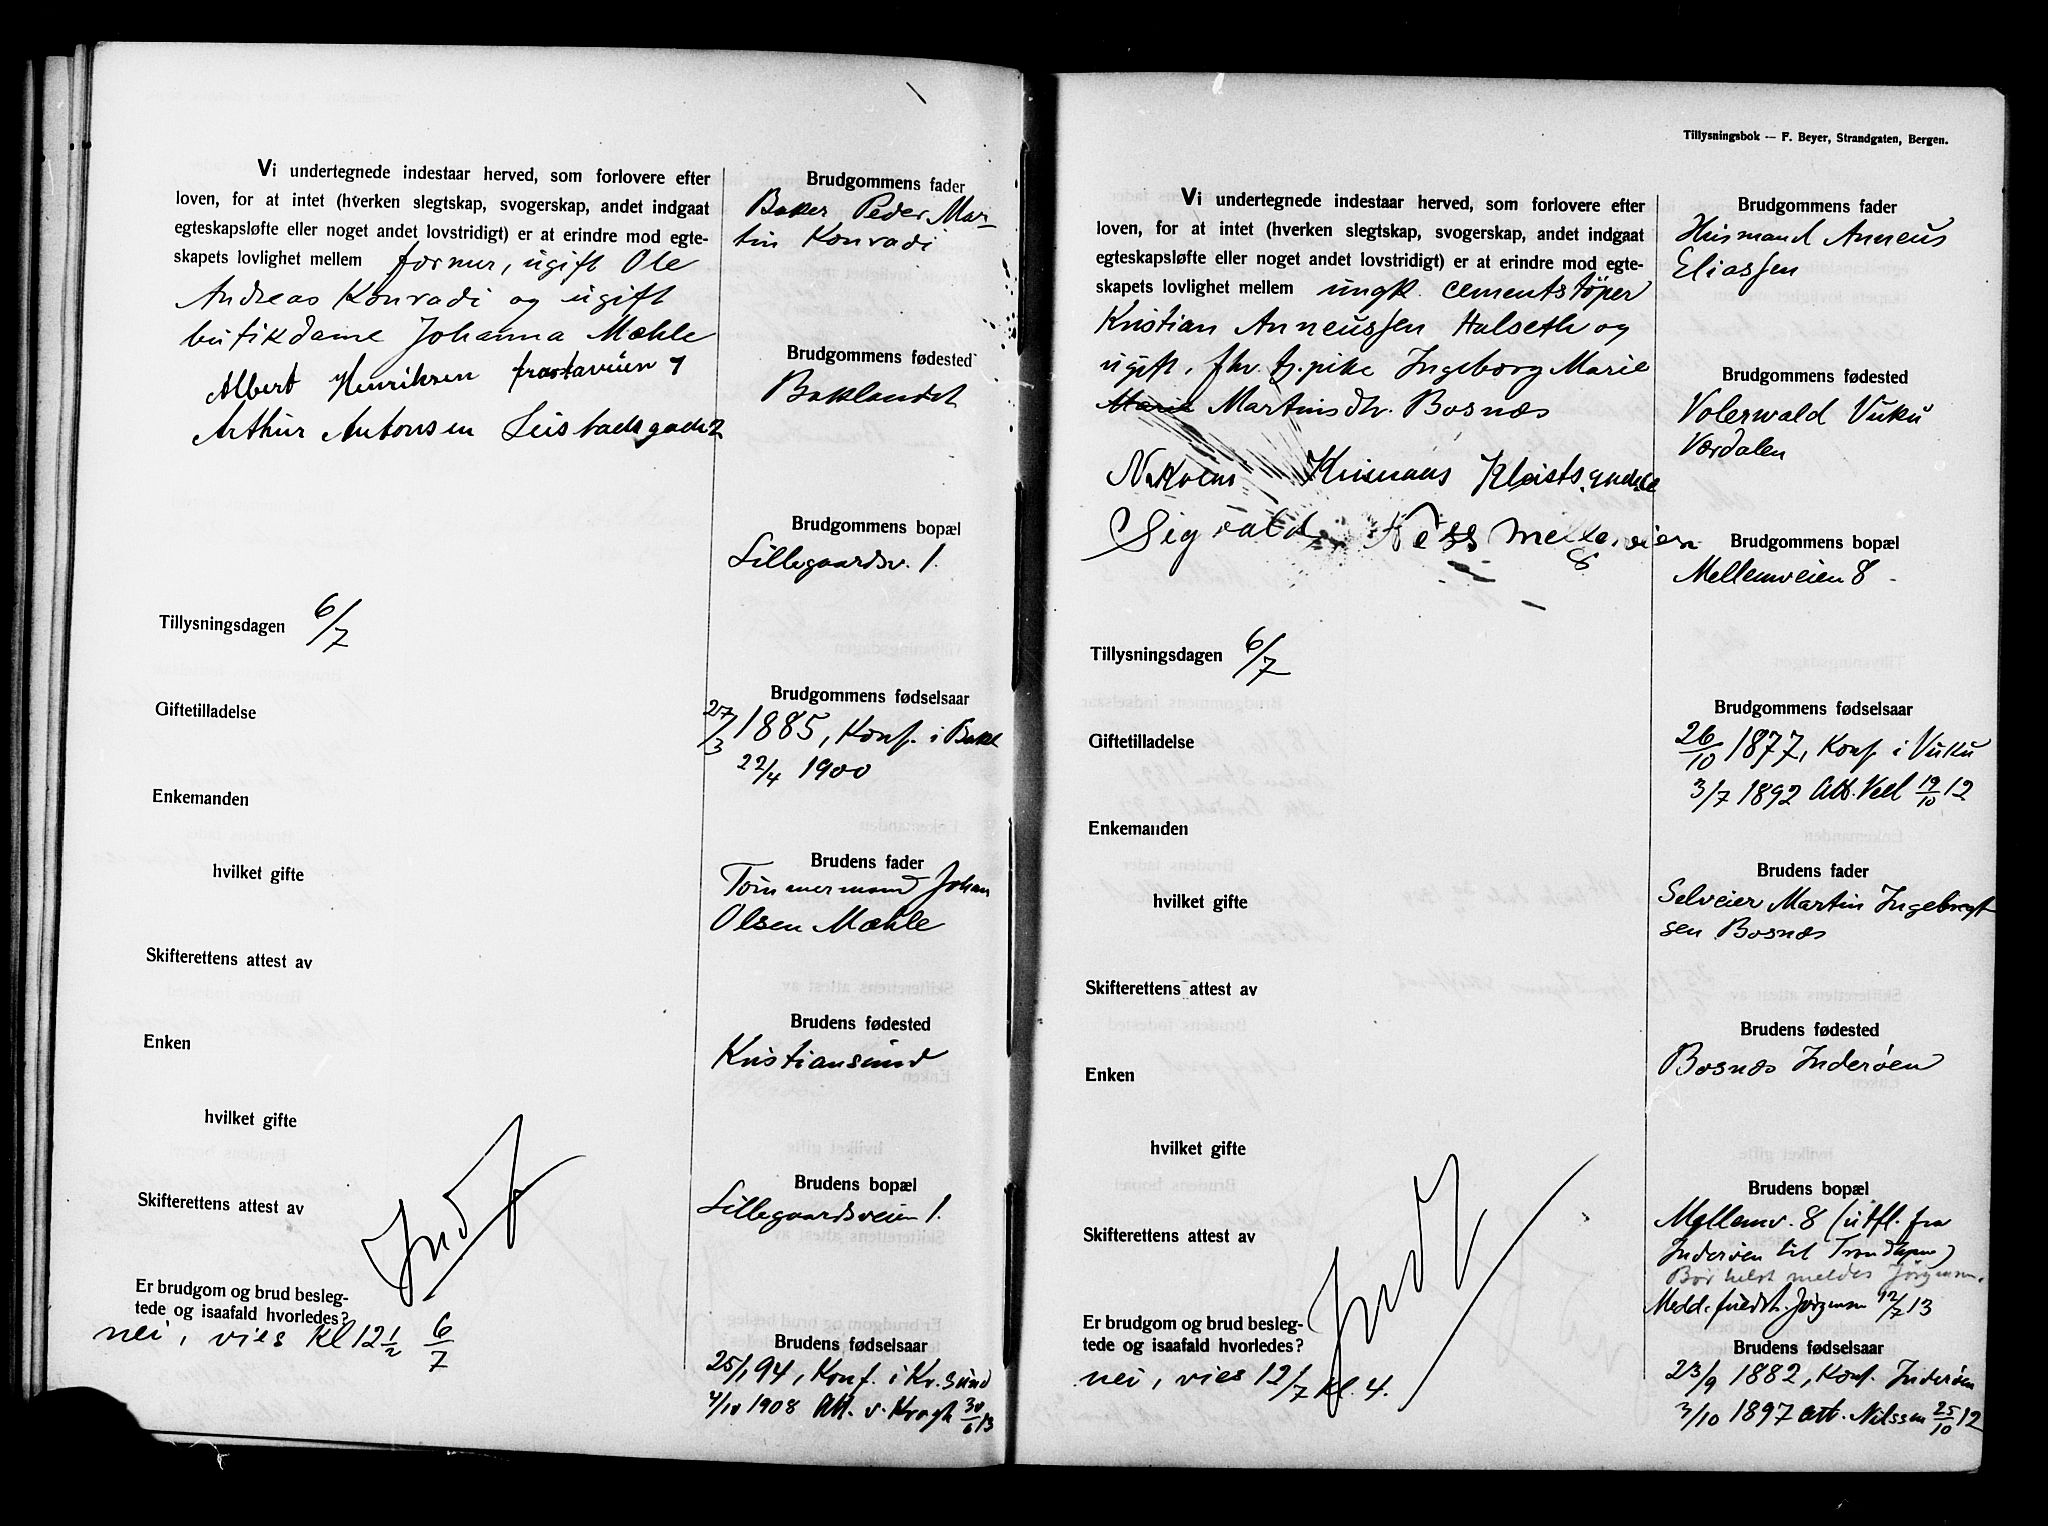 Vi undertegnede indestaar herved, som forlovere efter
loven, for at intet (hverken slegtskap, svogerskap, andet indgaat
egteskapsløfte eller noget andet lovstridigt) er at erindre mod egte-
skapets lovlighet mellem formur, ugift Ole
Andreas Konradi og ugift
butikdame Johanna Mæhle
Albert Henriksen frostaveien 7
Arthur Antonsen
Tillysningsdagen 6/7
Giftetilladelse
Enkemanden
hvilket gifte
Skifterettens attest av
Enken
hvilket gifte
Skifterettens attest av
Indf
Er brudgom og brud besleg-
tede og isaafald hvorledes?
nei, vies kl 12 1/2 6/7
Brudgommens fader
Baker Peder Mar-
tin Konradi
Brudgommens fødested
Baklandet
Brudgommens bopæl
Lillegaardsv. 1.
Brudgommens fødselsaar
27/3 1885, Konf. i Bakl
22/4 1900
Brudens fader
Tømmermand Johan
Olsen Mæhle
Brudens fødested
Kristiansund
Brudens bopæl
Lillegaardsveien 1.
Brudens fødselsaar
25/1 94, Konf. i Kr.sund
4/10 1908 Att. v. Krogh 30/6 13
Tillysningsbok — F. Beyer, Strandgaten, Bergen.
Vi undertegnede indestaar herved, som forlovere efter
loven, for at intet (hverken slegtskap, svogerskap, andet indgaat
egteskapsløfte eller noget andet lovstridigt) er at erindre mod egte-
skapets lovlighet mellem ungk. cementstøper
Kristian Anneussen Halseth og
ugift, fhv. tj.pike Ingeborg Marie
Marie Martinsdtr. Bosnæs
Sigvald Ness Mellemveien
8
Tillysningsdagen 6/7
Giftetilladelse
Enkemanden
hvilket gifte
Skifterettens attest av
Enken
hvilket gifte
Skifterettens attest av
Indf
Er brudgom og brud besleg-
tede og isaafald hvorledes?
nei, vies 12/7 kl. 4.
Brudgommens fader
Husmand Anneus
Eliassen
Brudgommens fødested
Volerwald Vuku
Værdalen
Brudgommens bopæl
Mellemveien 8
Brudgommens fødselsaar
26/10 1877, Konf i Vuku
3/7 1892 Att. Veel 19/10 12
Brudens fader
Selveier Martin Ingebrigt
sen Bosnæs
Brudens fødested
Bosnæs Inderøen
Brudens bopæl
Mellemv. 8 (utfl. fra
Inderøen til Trondhjem)
Bør helst meldes Jörgensen.
Medd. fuldst. Jørgensen 12/7 13
Brudens fødselsaar
23/9 1882, Konf. Inderøen
3/10 1897 att. Nilssen 25/10 12